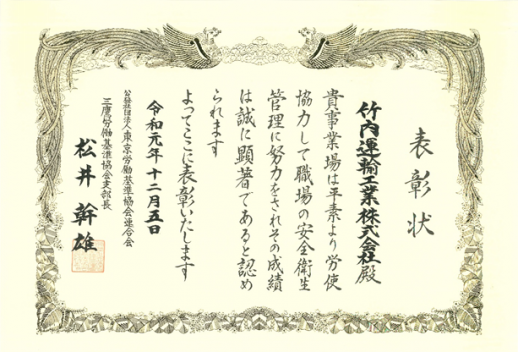 表彰状
竹内運輸工業株式会社殿
貴事業場は平素より労使
協力して職場の安全衛生
管理に努力をされその成績
は誠に顕著であると認め
られます
よってここに表彰いたします
令和元年十二月五日
公益社団法人東京労働基準協会連合会
三鷹労働基準協会支部長
松井幹雄